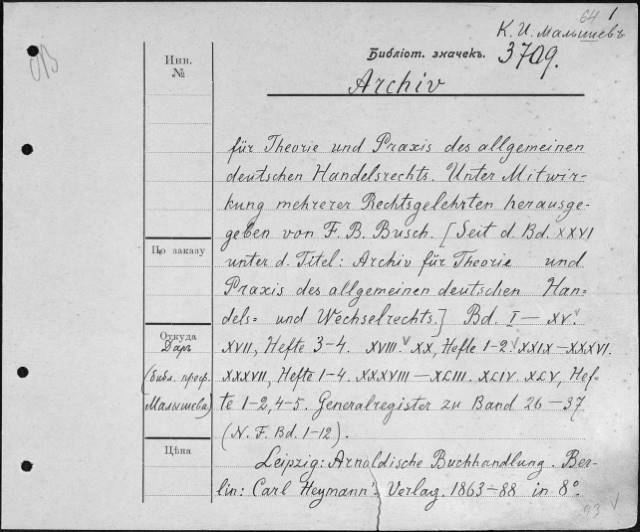 64 1
К. И. Малышевъ
Инв.
№
Библіот. значекъ. 3709.
Archiv
für Theorie und Praxis des allgemeinen
deutschen Handelsrechts. Unter Mitwir-
kung mehrerer Rechtsgelehrten herausge-
geben von F. B. Busch. [Seit d. Bd. XXVI
По заказу
unter d. Titel: Archiv für Theorie und
Praxis des allgemeinen deutschen Han-
dels= und Wechselrechts.] Bd. I — XV.
Откуда
Даръ
(библ. проф.
Малышева)
XVII, Hefte 3-4. XVIII. XX, Hefte 1-2. XXIX — XXXVI.
XXXVII, Hefte 1-4. XXXVIII — XLIII. XLIV. XLV, Hef-
te 1-2, 4-5. Generalregister zu Band 26 — 37
(N. F. Bd. 1-12).
Цѣна
Leipzig: Arnoldische Buchhandlung. Ber-
lin: Carl Heymann's Verlag. 1863-88 in 8°.
93